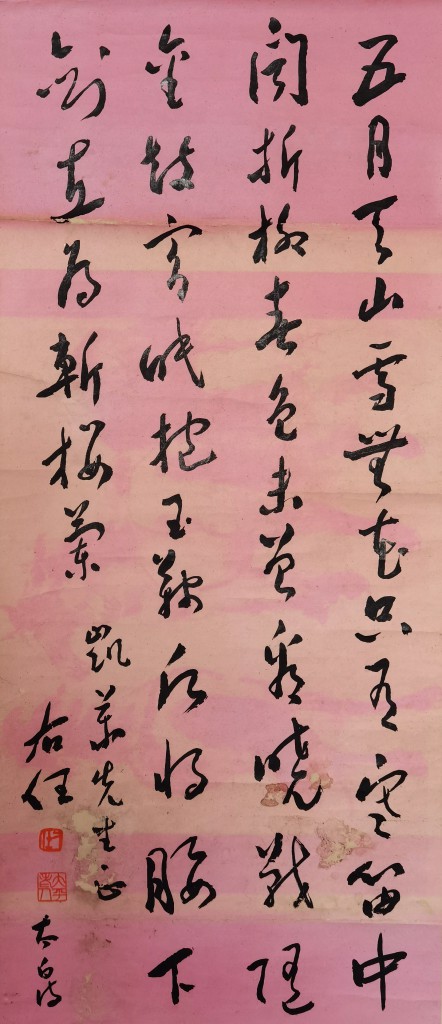 五月天山雪無花只有寒笛中
聞折柳春色未曾看曉戰隨
金鼓宵眠抱玉鞍願將腰下
劍直為斬樓蘭
凱業先生正
右任
太白詩